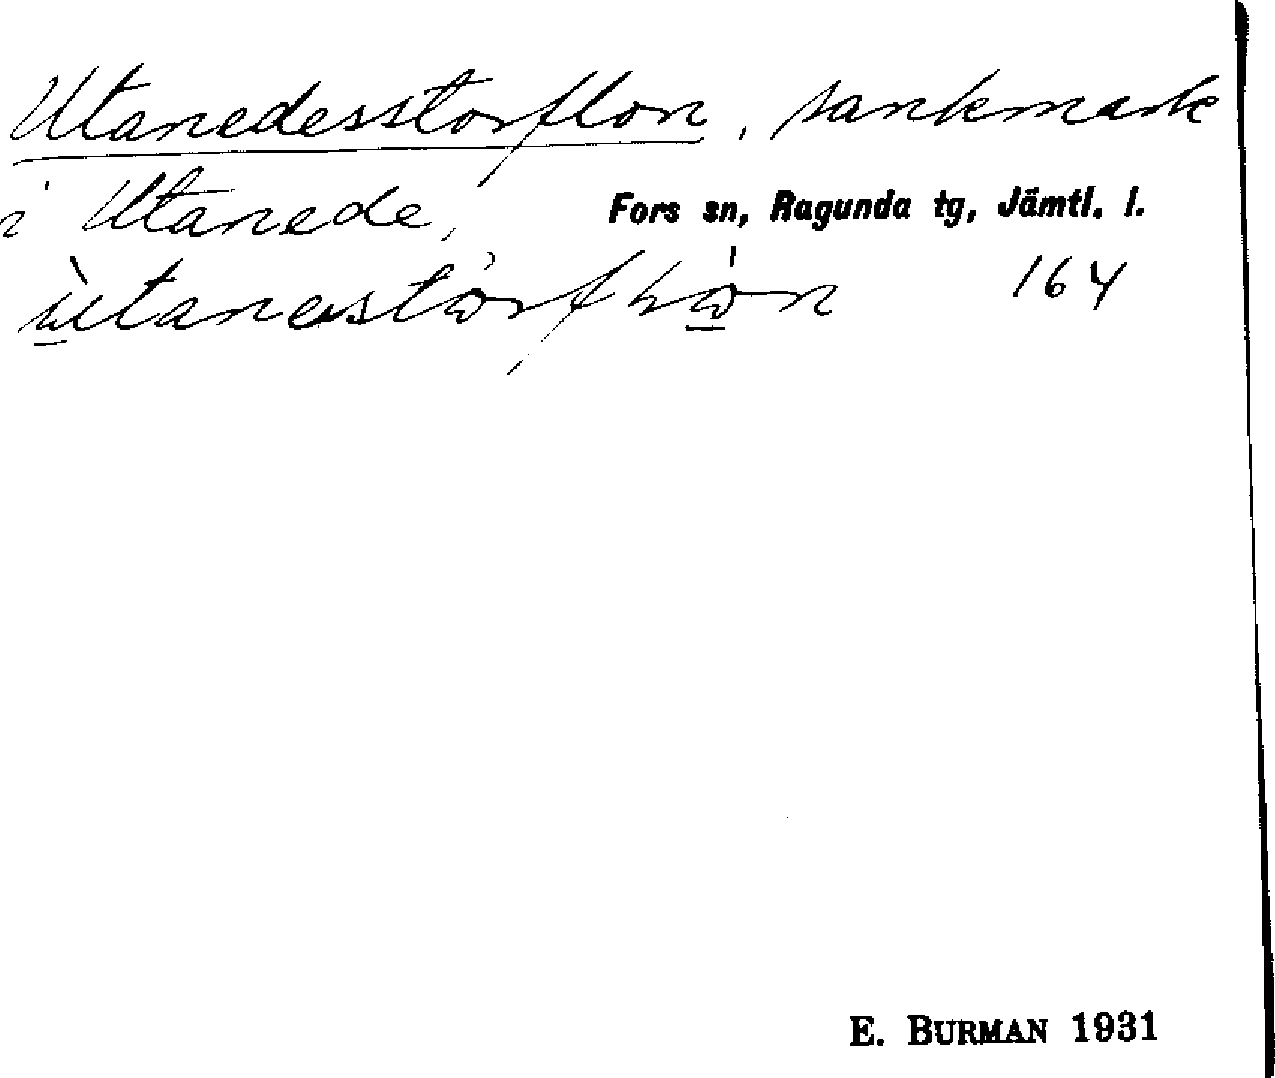 Utanedesstorflon, sankmark
i Utanede, Fors sn, Ragunda tg, Jämtl. l.
164
E. BURMAN 1931